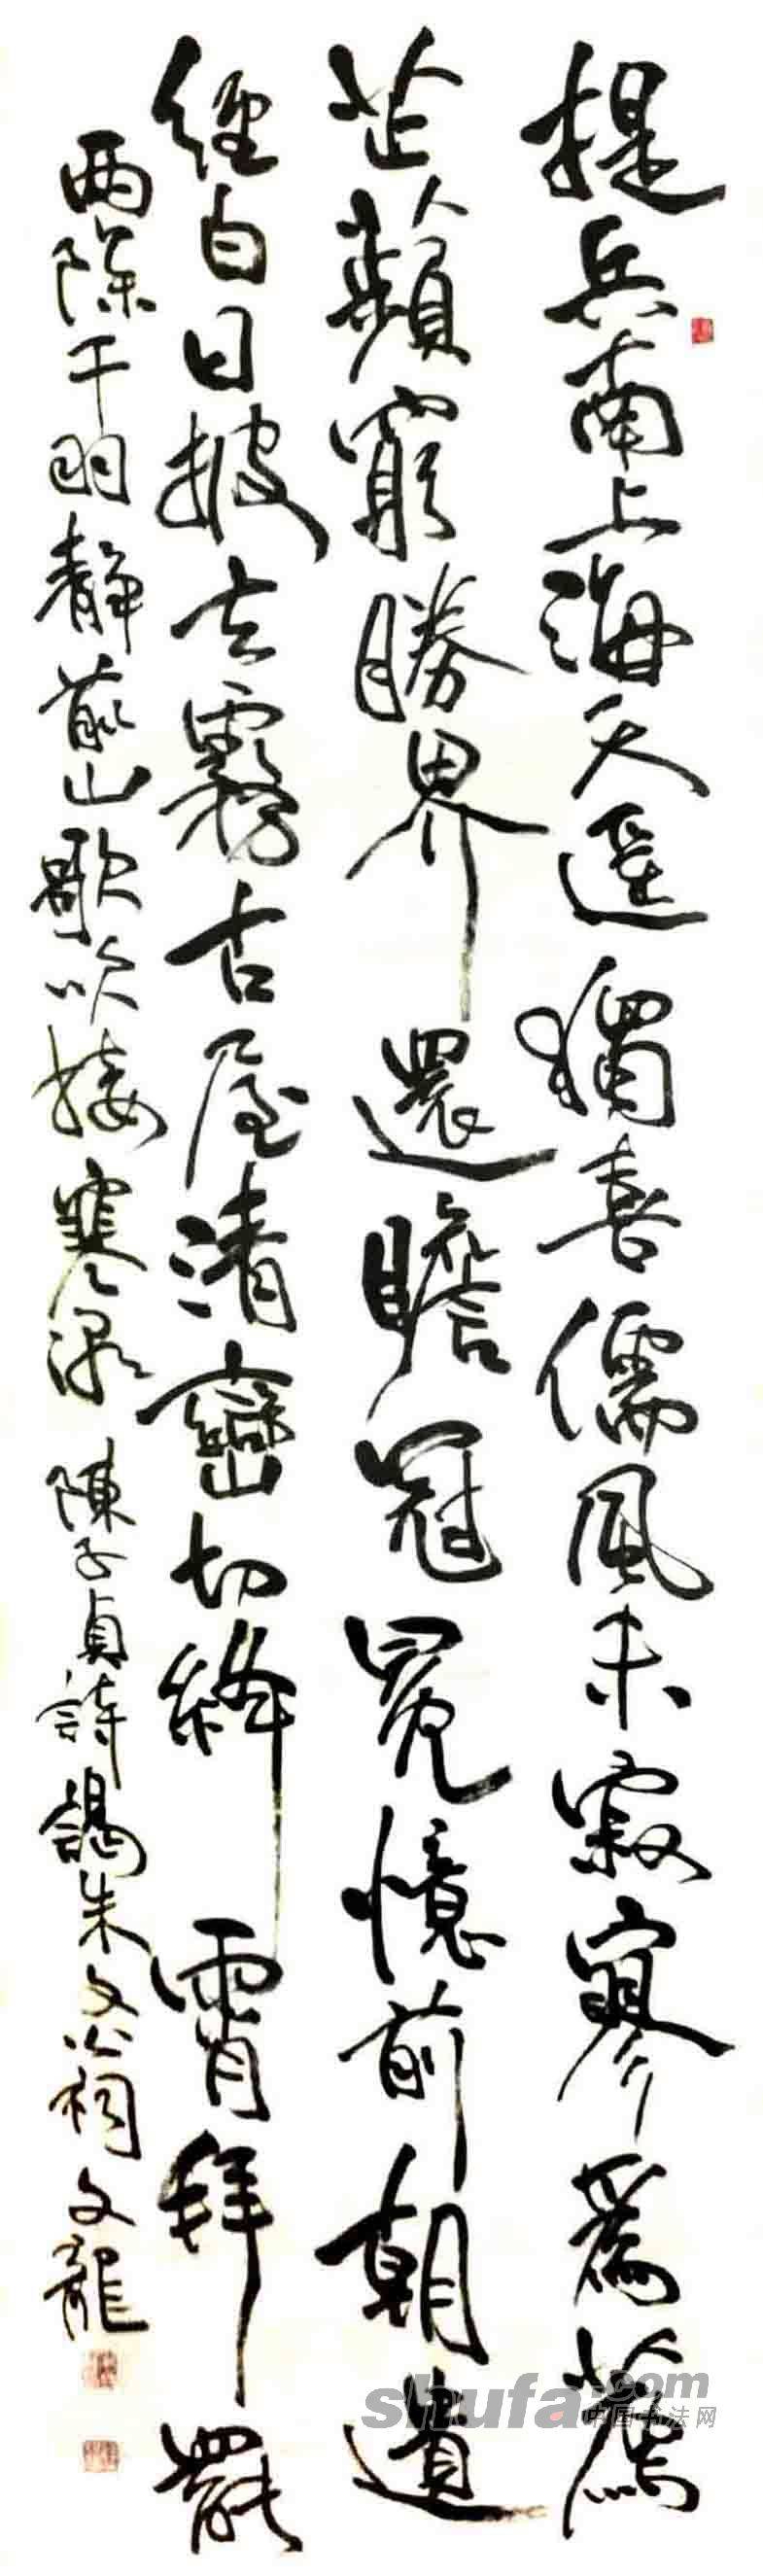 提兵南上海天遥獨喜儒風未寂寥爲薦
芷蘋窮勝界還瞻冠冕憶前朝遺
經白日披玄霧古屋清巒切絳霄拜罷
两階干羽静前山歌吹接寒潮 陳子貞詩謁朱文公祠 文龍
shufa.com
中国书法网